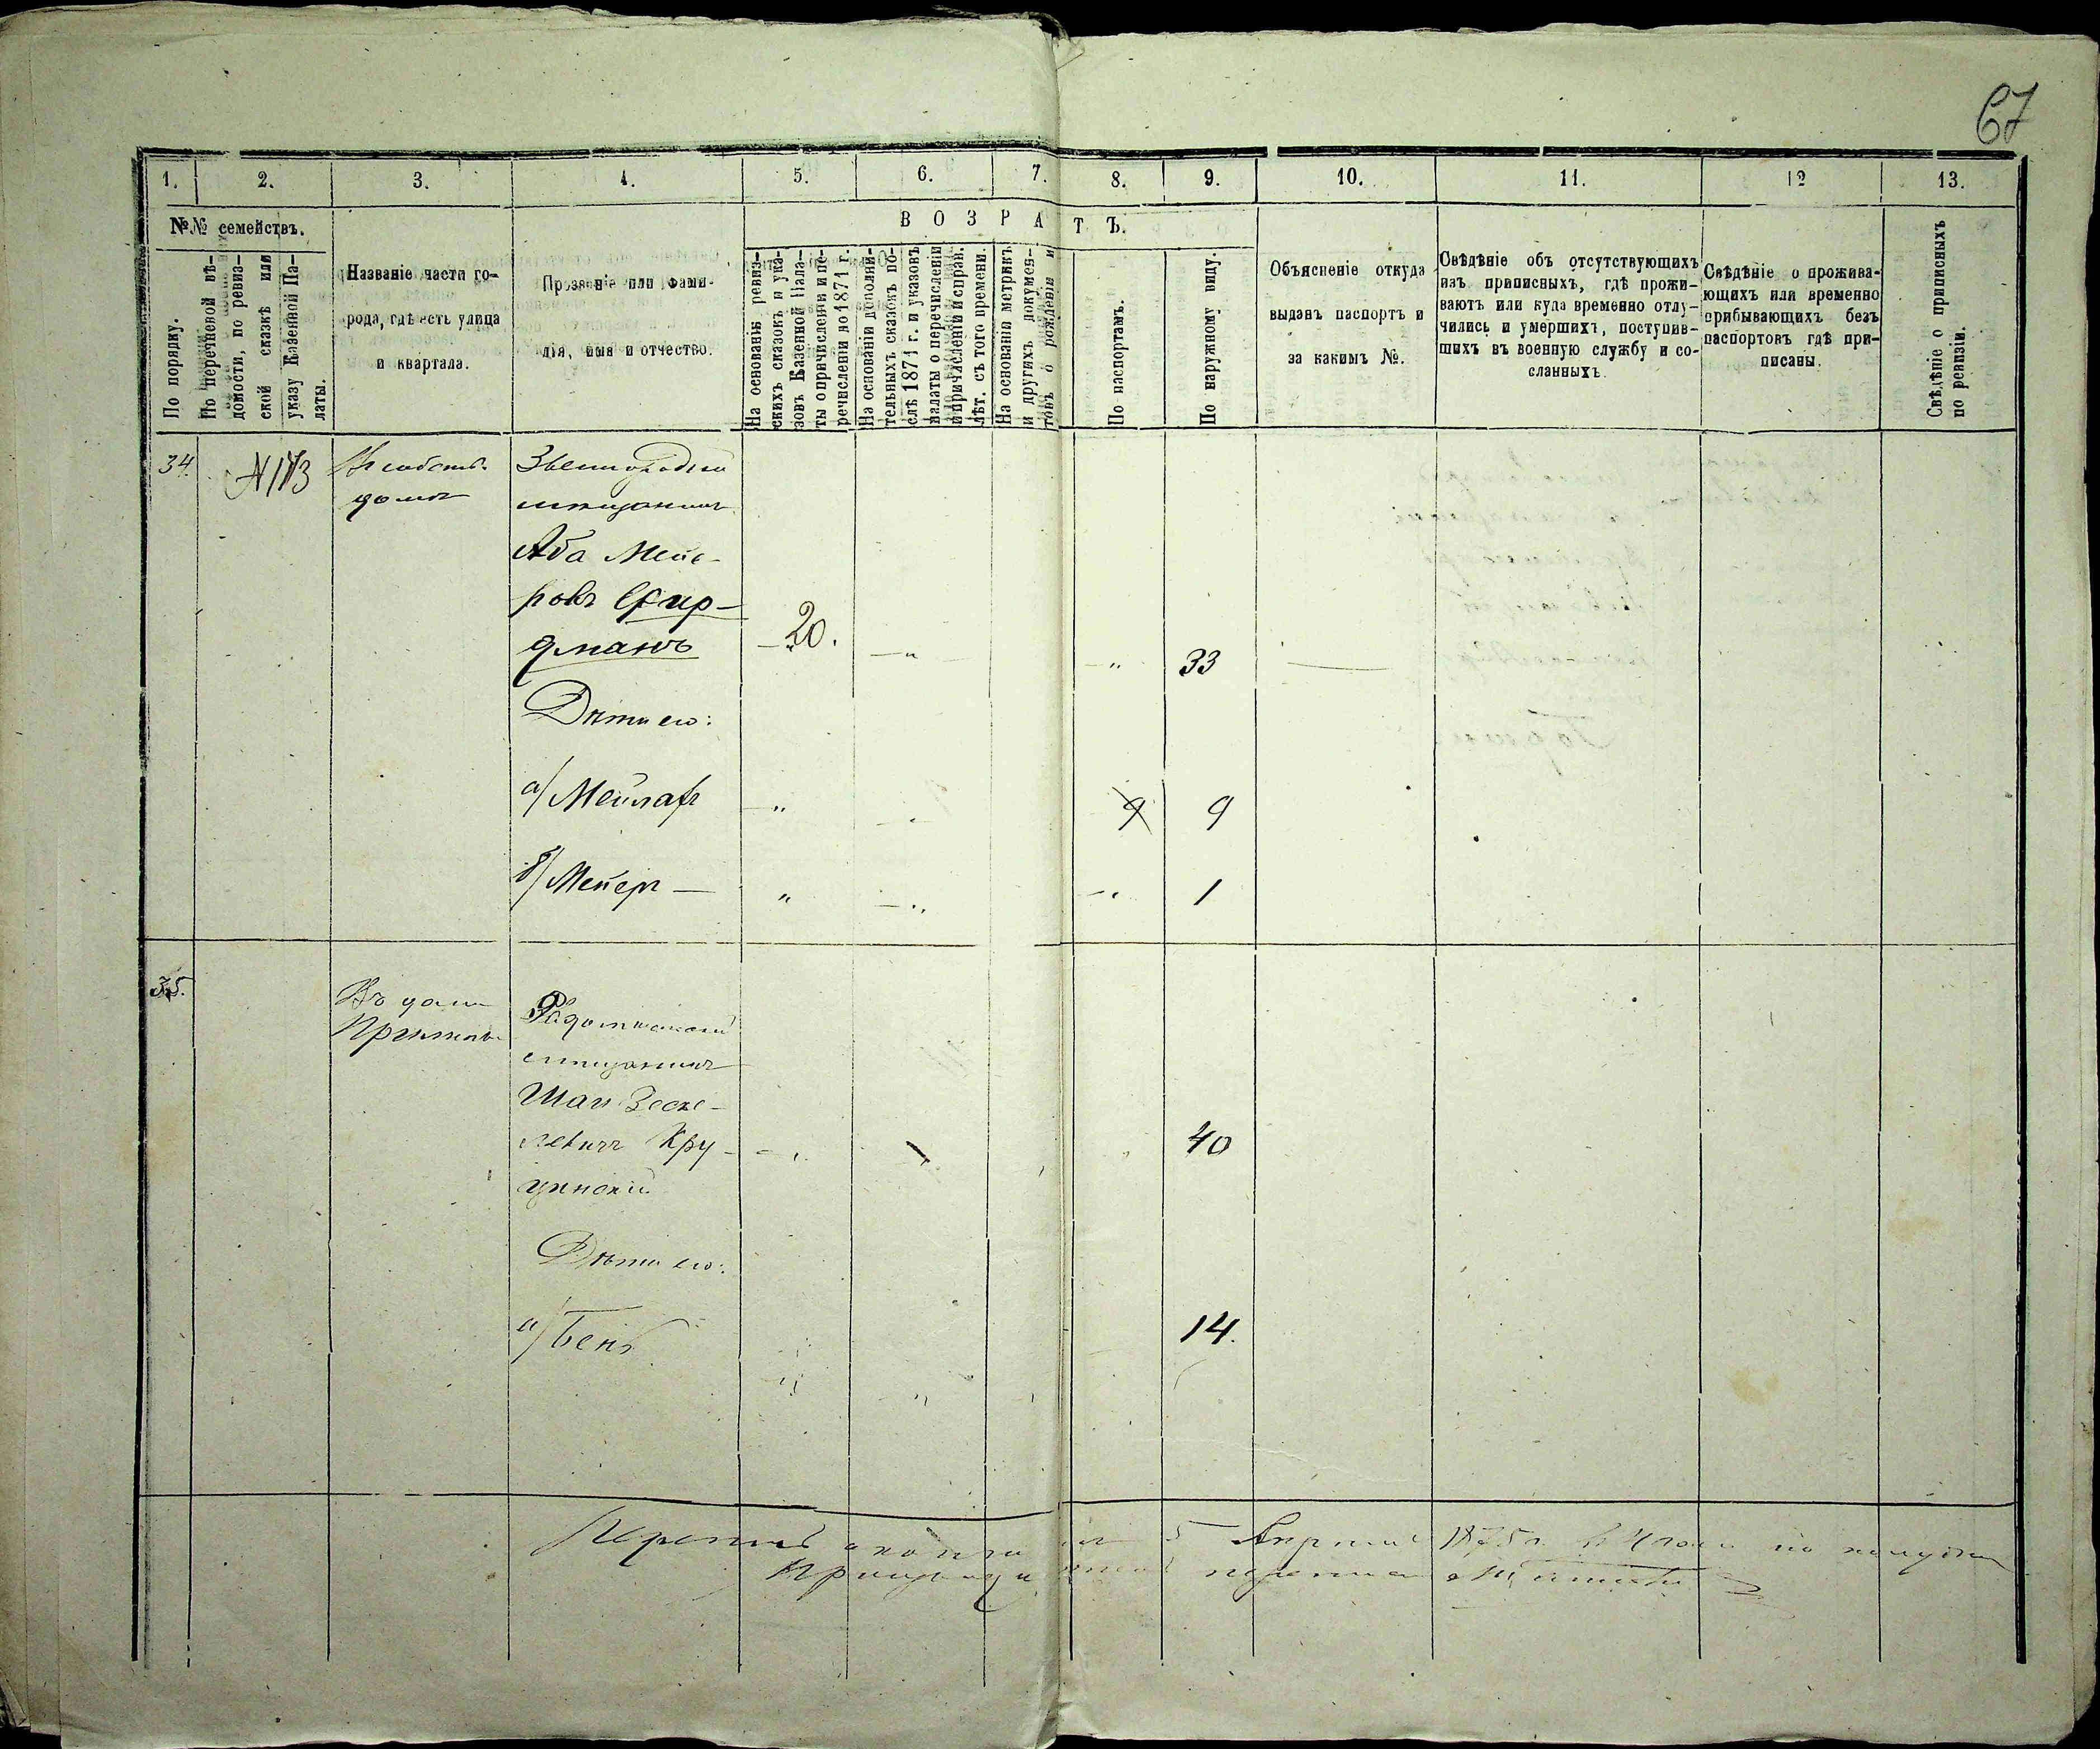 67
1. 2. 3. 4. 5. 6. 7. 8. 9. 10. 11. 12 13.
№№ семействъ.
По порядку.
По перечневой вѣ-
домости, по ревиз-
ской сказкѣ или
указу Казенной Па-
латы.
Названіе части го-
рода, гдѣ есть улица
и квартала.
Прозваніе или фами-
лія, имя и отчество.
ВОЗРАТЪ.
На основаніи ревиз-
скихъ сказокъ и ука-
зовъ Казенной Пала-
ты о причисленіи и пе-
речисленіи по 1871 г.
На основаніи дополни-
тельныхъ сказокъ по-
слѣ 1871 г. и указовъ
палаты о перечисленіи
и причисленіи и справ.
лѣт. съ того времени.
На основаніи метрикъ
и другихъ докумен-
товъ о рожденіи и
По паспортамъ.
По наружному виду.
Объясненіе откуда
выданъ паспортъ и
за какимъ №.
Свѣдѣніе объ отсутствующихъ
изъ приписныхъ, гдѣ прожи-
ваютъ или куда временно отлу-
чились и умершихъ, поступив-
шихъ въ военную службу и со-
сланныхъ.
Свѣдѣніе о прожива-
ющихъ или временно
прибывающихъ безъ
паспортовъ гдѣ при-
писаны.
Свѣдѣніе о приписныхъ
по ревизіи.
34. N 173
домѣ
мѣщанинъ
Аба Мейе-
ровъ Фир-
дманъ 20. 33
Дѣти его:
а) 9 9
б) Мейеръ 1
35.
Въ домѣ
мѣщанинъ
левичъ Кру- 40
Дѣти его:
а) Бенъ 14.
5 Апрѣля 1875 г. в 4 часа по полудни